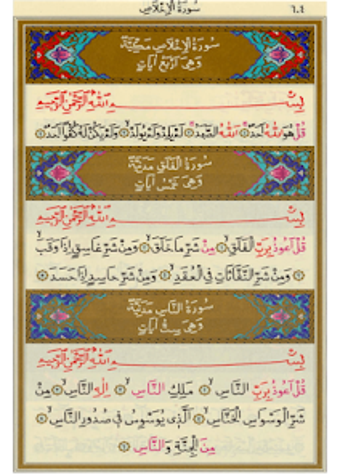 سورة الإخلاص ٦٠٤
سُورَةُ الْإِخْلَاصِ مَكِّيَّةٌ
وَهِيَ أَرْبَعُ آيَاتٍ
بِسْمِ اللّٰهِ الرَّحْمٰنِ الرَّحِيمِ
قُلْ هُوَ اللّٰهُ أَحَدٌ ۝ اَللّٰهُ الصَّمَدُ ۝ لَمْ يَلِدْ وَلَمْ يُولَدْ ۝ وَلَمْ يَكُنْ لَهُ كُفُوًا أَحَدٌ ۝
سُورَةُ الْفَلَقِ مَدَنِيَّةٌ
وَهِيَ خَمْسُ آيَاتٍ
بِسْمِ اللّٰهِ الرَّحْمٰنِ الرَّحِيمِ
قُلْ أَعُوذُ بِرَبِّ الْفَلَقِ ۝ مِنْ شَرِّ مَا خَلَقَ ۝ وَمِنْ شَرِّ غَاسِقٍ إِذَا وَقَبَ
۝ وَمِنْ شَرِّ النَّفَّاثَاتِ فِي الْعُقَدِ ۝ وَمِنْ شَرِّ حَاسِدٍ إِذَا حَسَدَ ۝
سُورَةُ النَّاسِ مَدَنِيَّةٌ
وَهِيَ سِتُّ آيَاتٍ
بِسْمِ اللّٰهِ الرَّحْمٰنِ الرَّحِيمِ
قُلْ أَعُوذُ بِرَبِّ النَّاسِ ۝ مَلِكِ النَّاسِ ۝ إِلٰهِ النَّاسِ ۝ مِنْ
شَرِّ الْوَسْوَاسِ الْخَنَّاسِ ۝ اَلَّذِي يُوَسْوِسُ فِي صُدُورِ النَّاسِ ۝
مِنَ الْجِنَّةِ وَالنَّاسِ ۝